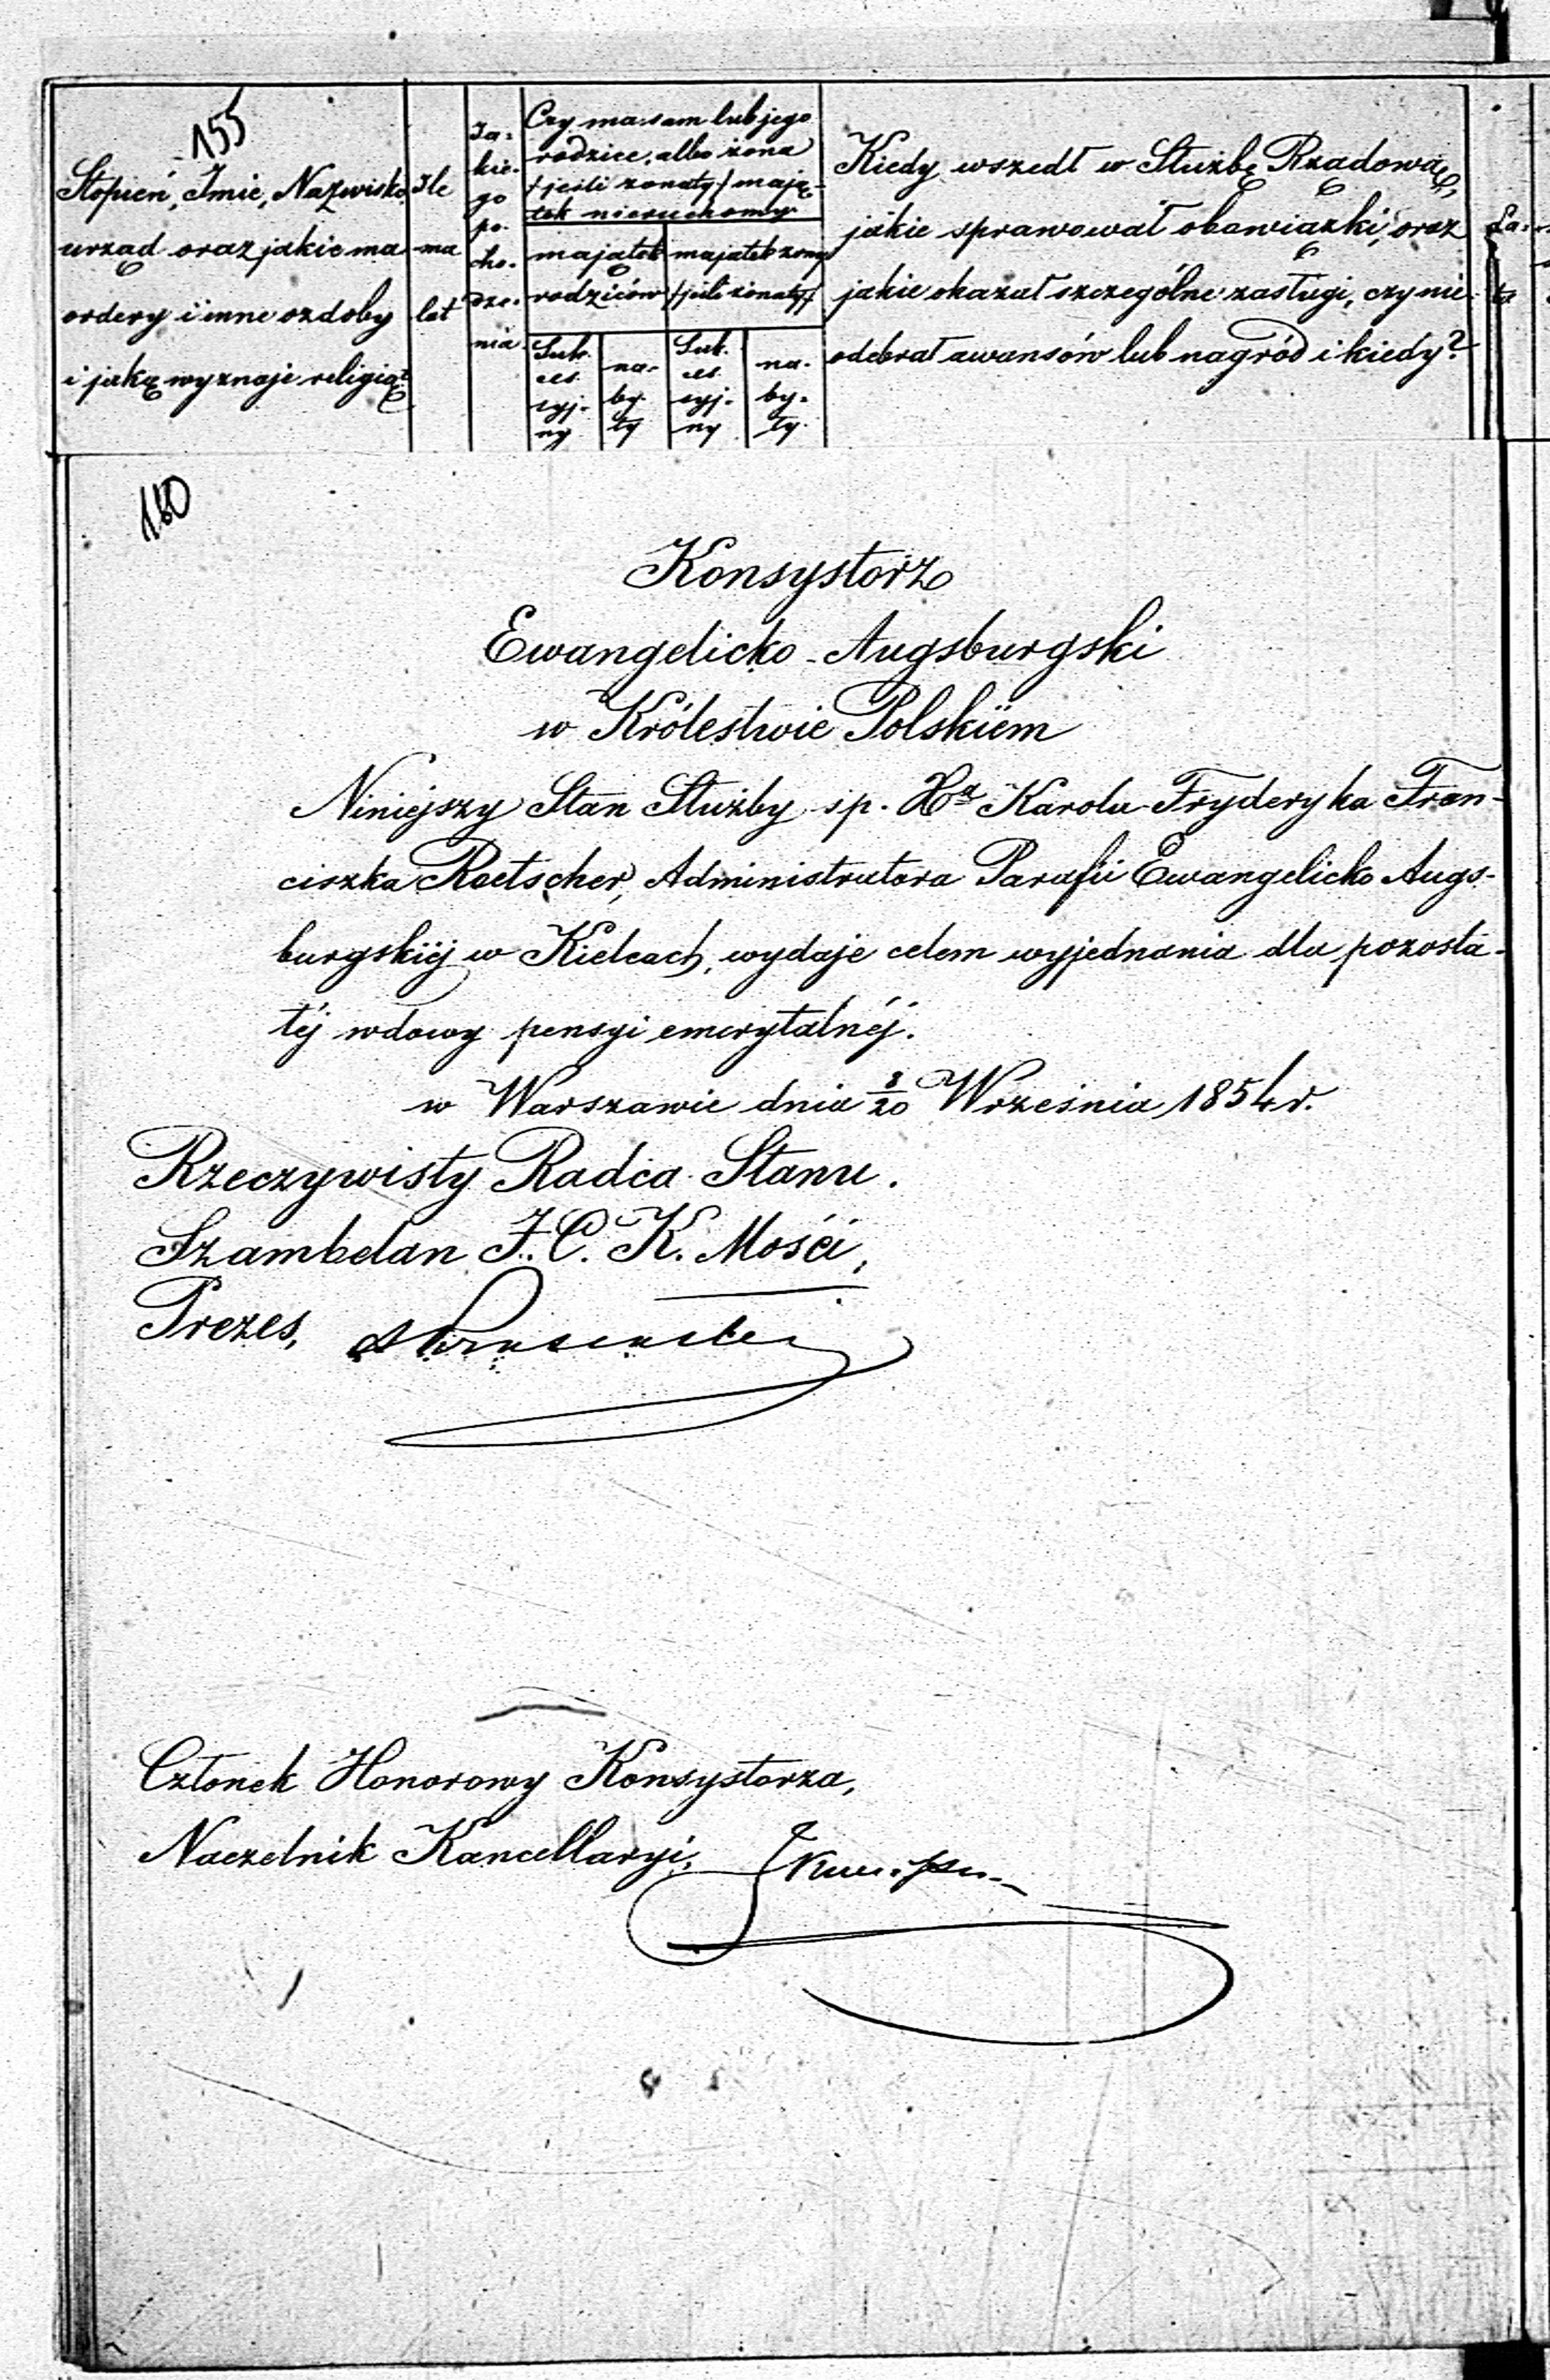 155
Stopień, Imie, Nazwisko,
urząd oraz jakie ma
ordery i inne ozdoby
i jaką wyznaje religię?
Ile
ma
lat
Ja-
kie-
go
po-
cho-
dze-
nia
Czy ma sam lub jego
rodzice, albo żona
/jeśli żonaty/ mają-
tek nieruchomy
majątek
rodziców
majątek żony
/jeśli żonaty/
Suk-
ces
syj-
ny
na-
by-
ty
Suk-
ces
syj-
ny
na-
by-
ty
Kiedy wszedł w Służbę Rządową,
jakie sprawował obowiązki, oraz
jakie okazał szczególne zasługi, czy nie
odebrał awansów lub nagród i kiedy?
La-
ta
160
Konsystorz
Ewangelicko-Augsburgski
w Królestwie Polskiém
Niniejszy Stan Służby ś.p. Xa Karola Fryderyka Fran-
ciszka Roetscher, Administratora Parafii Ewangelicko Augs-
burgskiéj w Kielcach, wydaje celem wyjednania dla pozosta-
łéj wdowy pensyi emerytalnéj.
w Warszawie dnia 8/20 Września 1854 r.
Rzeczywisty Radca Stanu.
Szambelan J. C. K. Mości,
Prezes,
Członek Honorowy Konsystorza,
Naczelnik Kancellaryi,